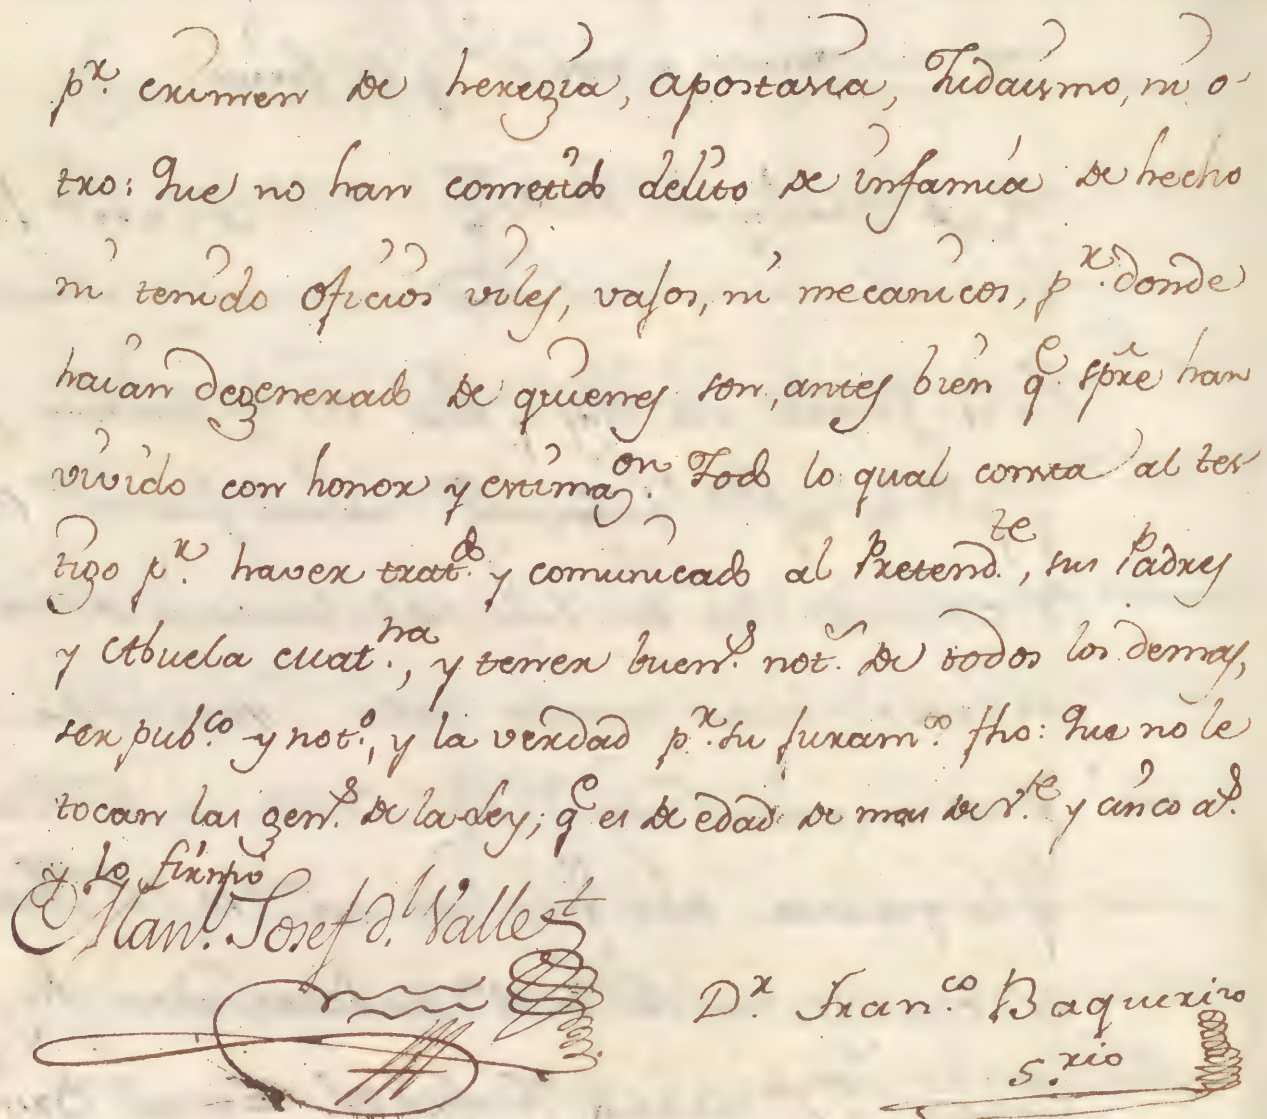 p.r crimen de heregia, apostasia, Judaismo, ni o-
tro: Que no han cometido delito de infamia de hecho
ni tenido oficios viles, vajos, ni mecanicos, p.r donde
haian degenerado de quienes son, antes bien q.e spre han
vivido con honor y estimaz.on Todo lo qual consta al tes
tigo p.r haver trat.do y comunicado al Pretend.te, sus Padres
y Abuela mat.na, y tener buen.s not.s de todos los demas,
ser pub.co y not.o, y la verdad p.r su juram.to fho: Que no le
tocan las gen.s de la Ley; q.e es de edad de mas de v.te y cinco a.s
y lo firmó
Man.l Josef d.l Valle
D.r Fran.co Baquerizo
S.rio